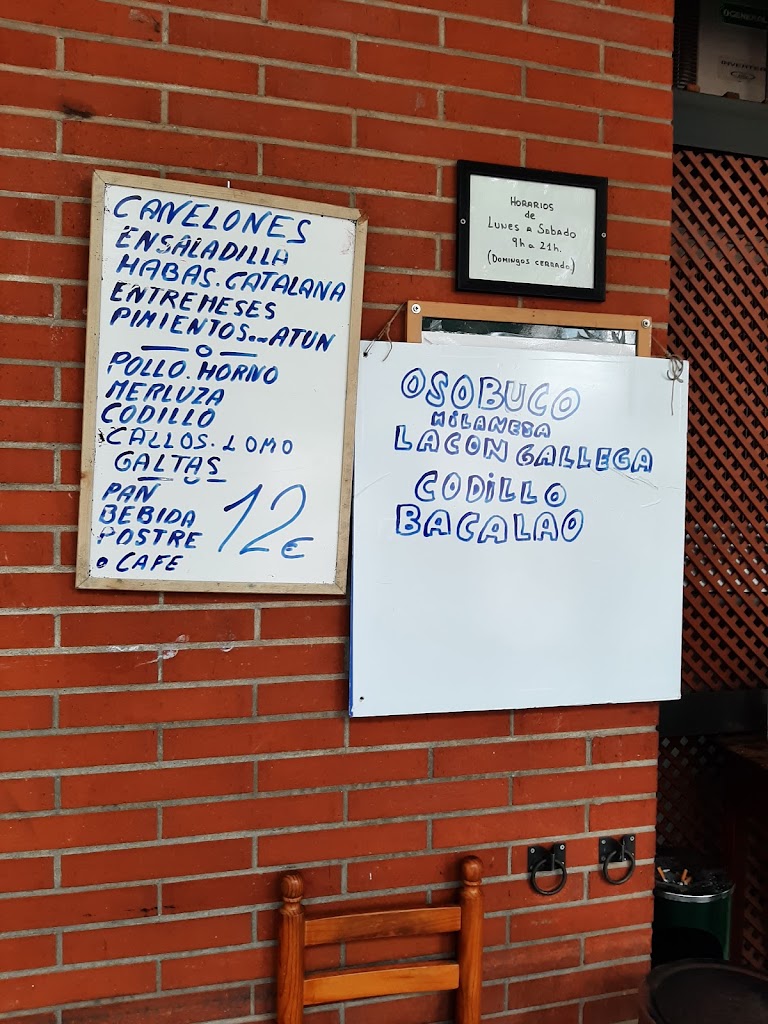 CANELONES
ENSALADILLA
HABAS.CATALANA
ENTREMESES
PIMIENTOS...ATUN
— o —
POLLO.HORNO
MERLUZA
CODILLO
CALLOS.LOMO
GALTAS
— o —
PAN
BEBIDA
POSTRE
o CAFE
12€
HORARIOS
de
LUNES a SABADO
9h a 21h.
(DOMINGOS CERRADO)
OSOBUCO
MiLANESA
LACON GALLEGA
CODiLLO
BACALAO
GENERAL
INVERTER